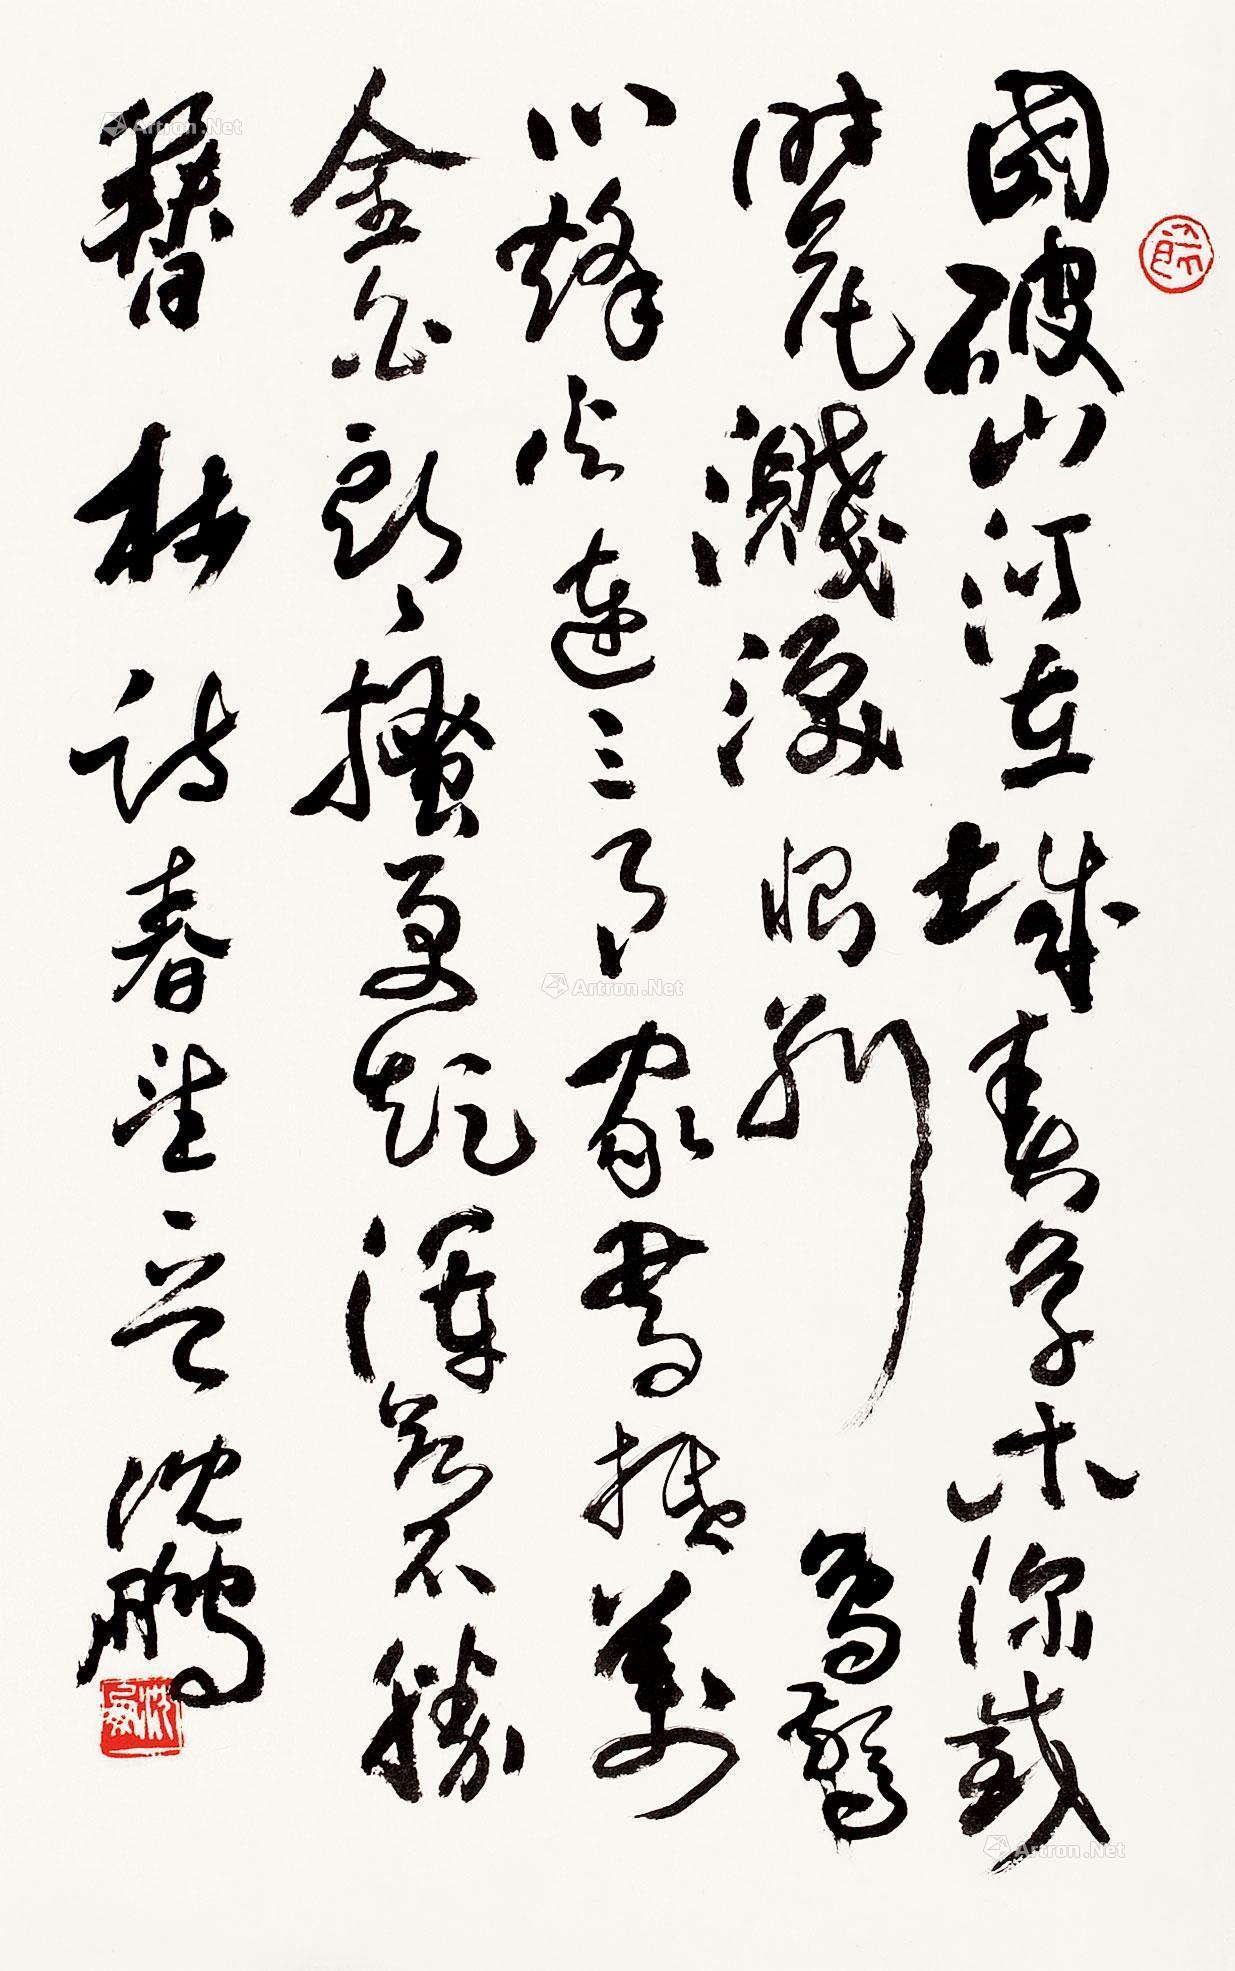 國破山河在城春草木深感
時花濺淚恨別鳥驚
心烽火連三月家書抵萬
金白頭搔更短渾欲不勝
簪 杜詩春望 沈鵬
沈鵬
Artron.Net
Artron.Net
Artron.Net